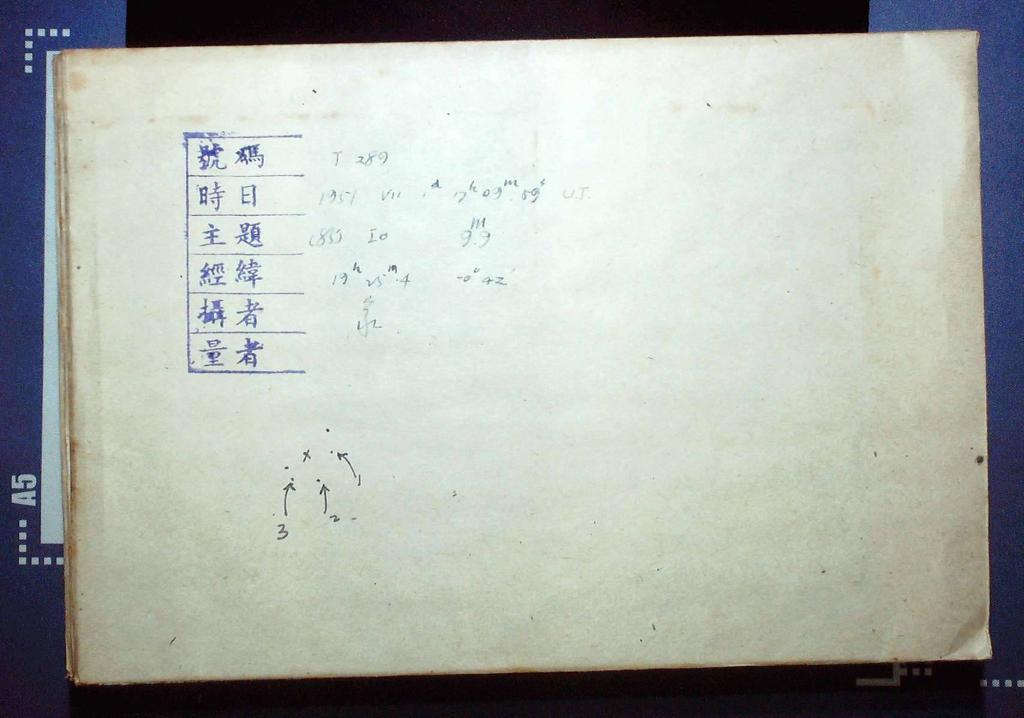 號碼 T 289
時日 1951 VII 1ᵈ 17ʰ 09ᵐ 59ˢ U.T.
主題 (85) Io 9ᵐ.9
經緯 19ʰ 25ᵐ.4 -0° 42'
攝者
量者
1
3 2
A5